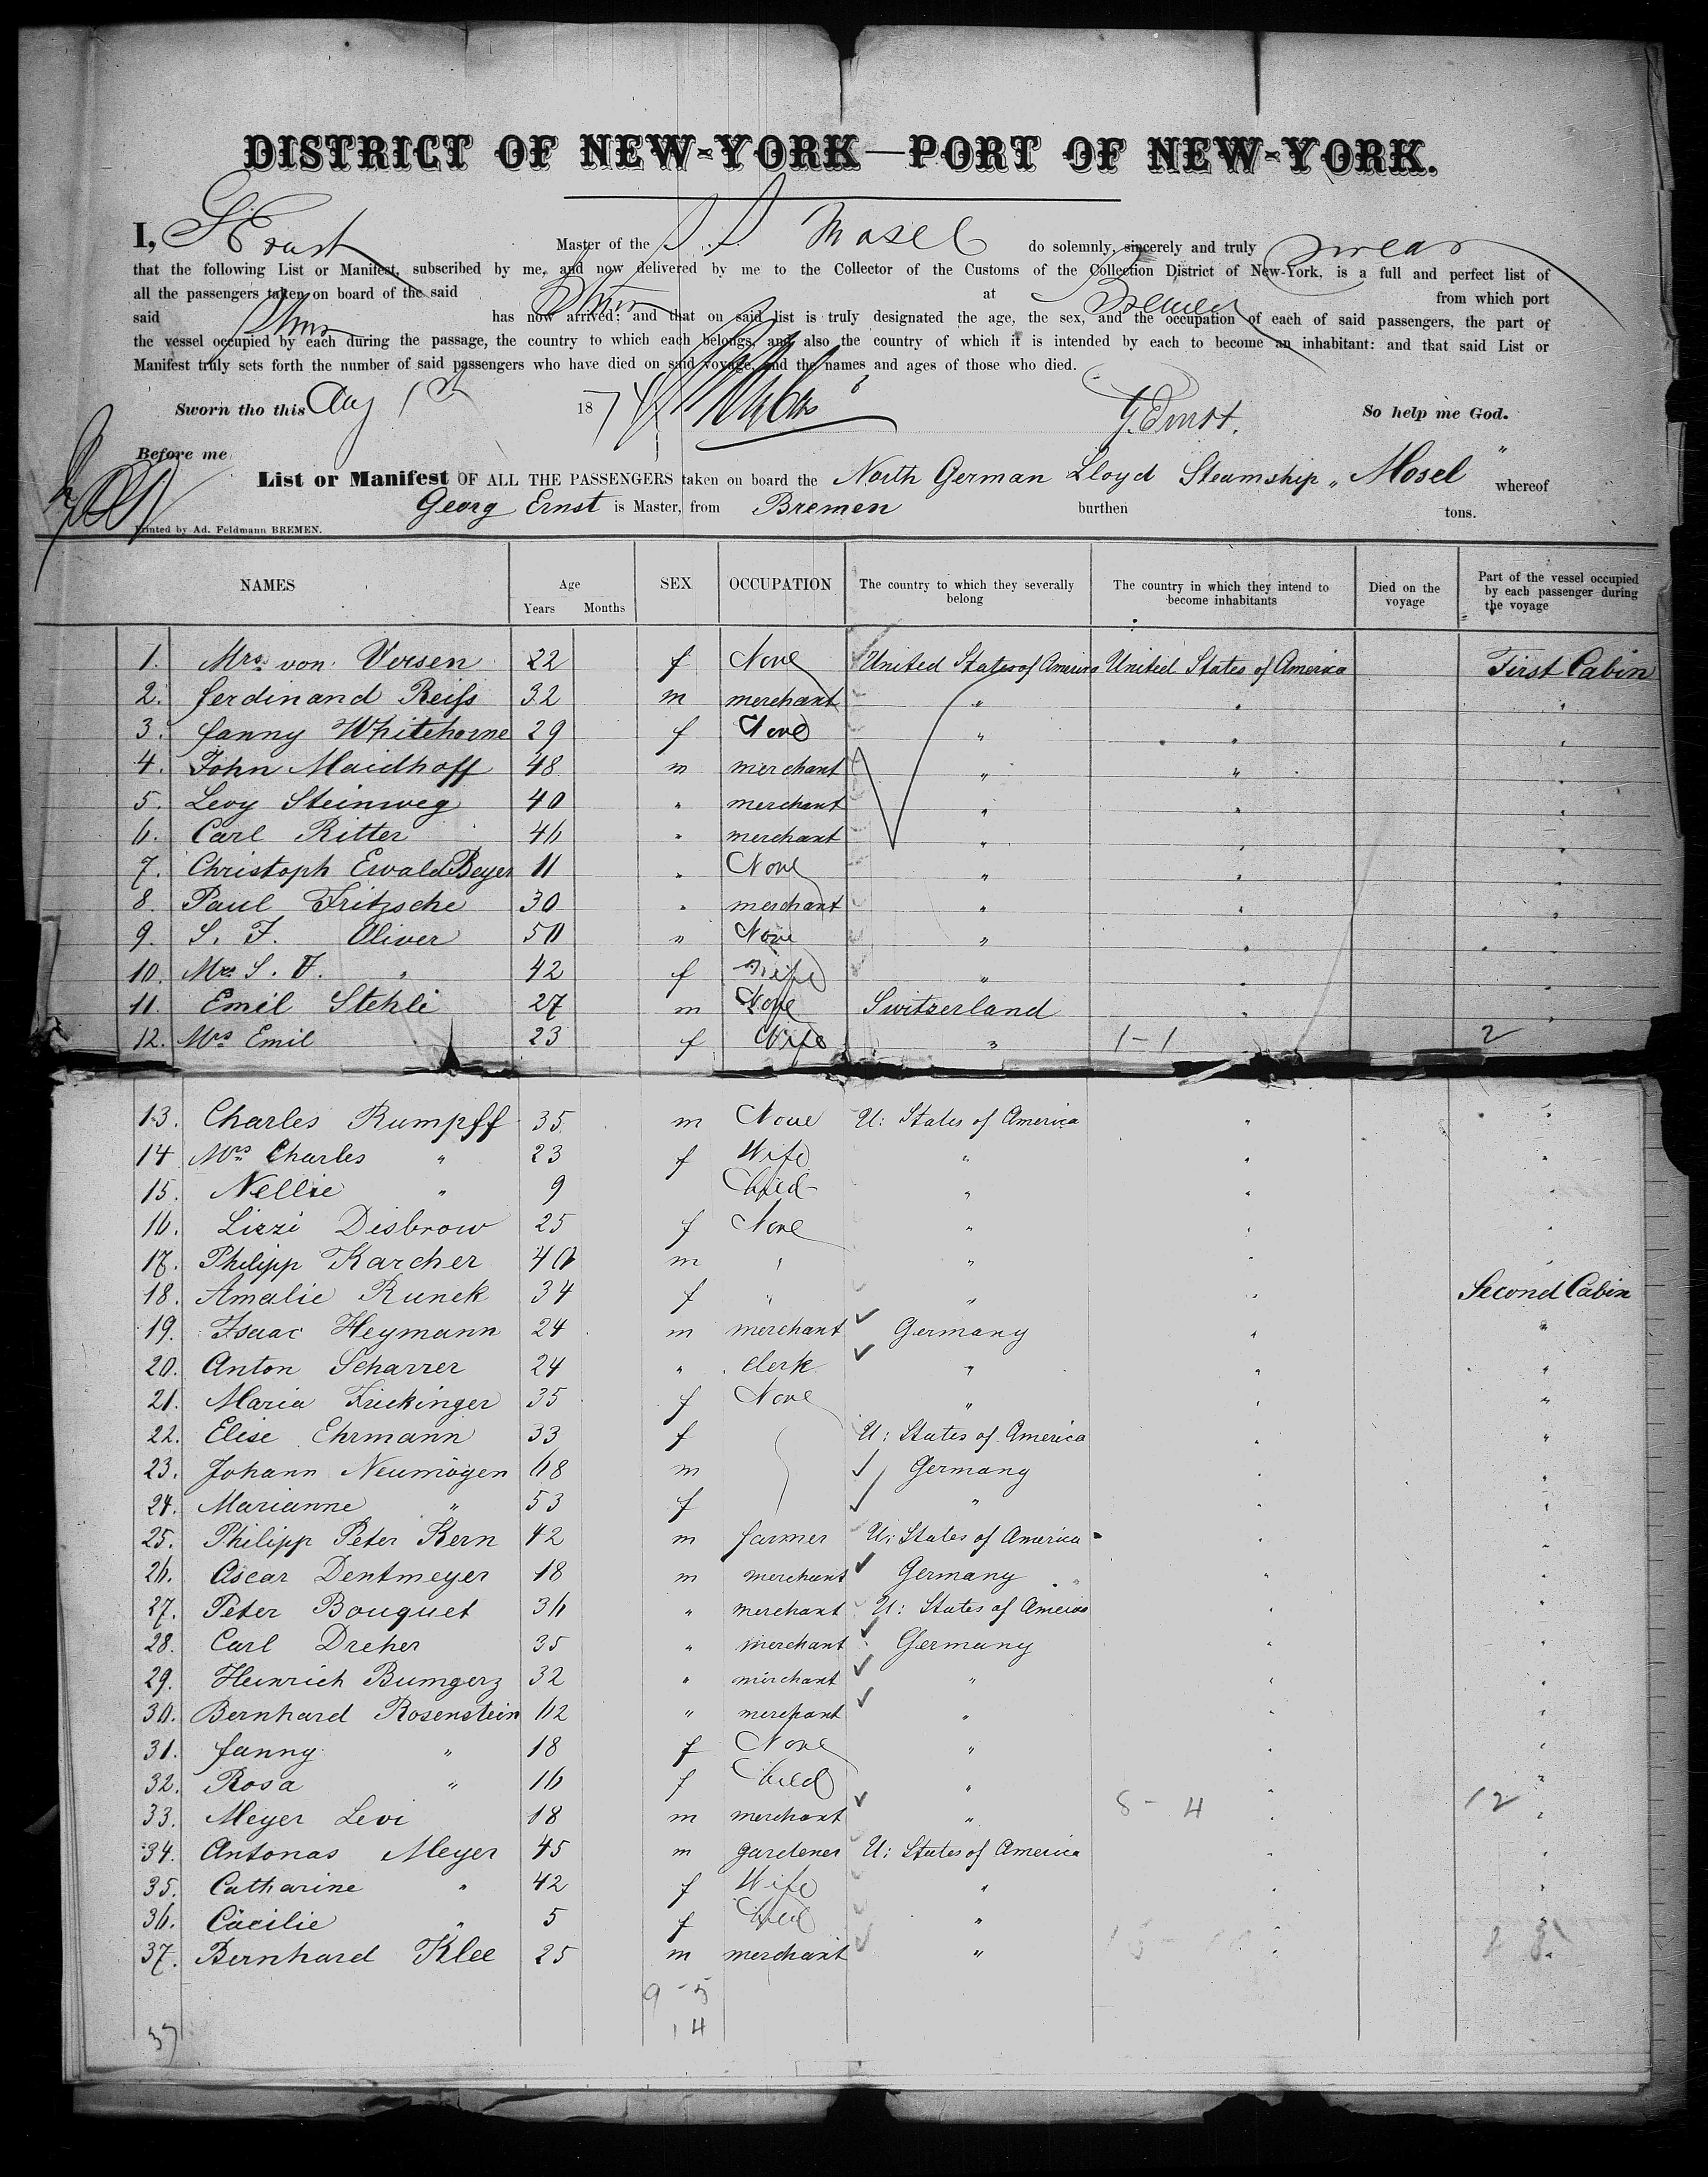 DISTRICT OF NEW-YORK—PORT OF NEW-YORK.
I, G Ernst Master of the S. S. Mosel do solemnly, sincerely and truly swear
that the following List or Manifest, subscribed by me, and now delivered by me to the Collector of the Customs of the Collection District of New-York, is a full and perfect list of
all the passengers taken on board of the said Str at Bremen from which port
said Str has now arrived: and that on said list is truly designated the age, the sex, and the occupation of each of said passengers, the part of
the vessel occupied by each during the passage, the country to which each belongs, and also the country of which it is intended by each to become an inhabitant: and that said List or
Manifest truly sets forth the number of said passengers who have died on said voyage, and the names and ages of those who died.
Sworn tho this Aug 1st 1874 G. Ernst. So help me God.
Before me
List or Manifest OF ALL THE PASSENGERS taken on board the North German Lloyd Steamship „ Mosel " whereof
Georg Ernst is Master, from Bremen burthen tons.
Printed by Ad. Feldmann BREMEN.
NAMES Age Years Months SEX OCCUPATION The country to which they severally belong The country in which they intend to become inhabitants Died on the voyage Part of the vessel occupied by each passenger during the voyage
1. Mrs. von Versen 22 f None United States of America United States of America First Cabin
2. Ferdinand Reifs 32 m merchant " " "
3. Fanny Whitehorne 29 f None " " "
4. John Maidhoff 48 m merchant " " "
5. Levy Steinweg 40 " merchant " " "
6. Carl Ritter 46 " merchant " " "
7. Christoph Ewald Beyer 11 " None " " "
8. Paul Fritzsche 30 " merchant " " "
9. S. F. Oliver 50 " None " " "
10. Mrs S. F. " 42 f Wife " " "
11. Emil Stehli 27 m None Switzerland " "
12. Mrs Emil 23 f Wife " 1-1 2
13. Charles Rumpff 35 m None U: States of America " "
14. Mrs Charles " 23 f Wife " " "
15. Nellie " 9 Child " " "
16. Lizzi Disbrow 25 f None " " "
17. Philipp Karcher 40 m " " " "
18. Amalie Runck 34 f " " " Second Cabin
19. Isaac Heymann 24 m merchant Germany " "
20. Anton Scharrer 24 " clerk " " "
21. Maria Frickinger 35 f None " " "
22. Elise Ehrmann 33 f U: States of America " "
23. Johann Neumögen 68 m Germany " "
24. Marianne " 53 f " " "
25. Philipp Peter Kern 42 m farmer U: States of America " "
26. Oscar Dentmeyer 18 m merchant Germany " "
27. Peter Bouquet 36 " merchant U: States of America " "
28. Carl Dreher 35 " merchant Germany " "
29. Heinrich Bumgerz 32 " merchant " " "
30. Bernhard Rosenstein 62 " merchant " " "
31. Fanny " 18 f None " " "
32. Rosa " 16 f Child " " "
33. Meyer Levi 18 m merchant " 8-4 " 12 "
34. Antonas Meyer 45 m gardener U: States of America " "
35. Catharine " 42 f Wife " " "
36. Cäcilie " 5 f Child " " "
37. Bernhard Klee 25 m merchant " " "
9-5
14
37